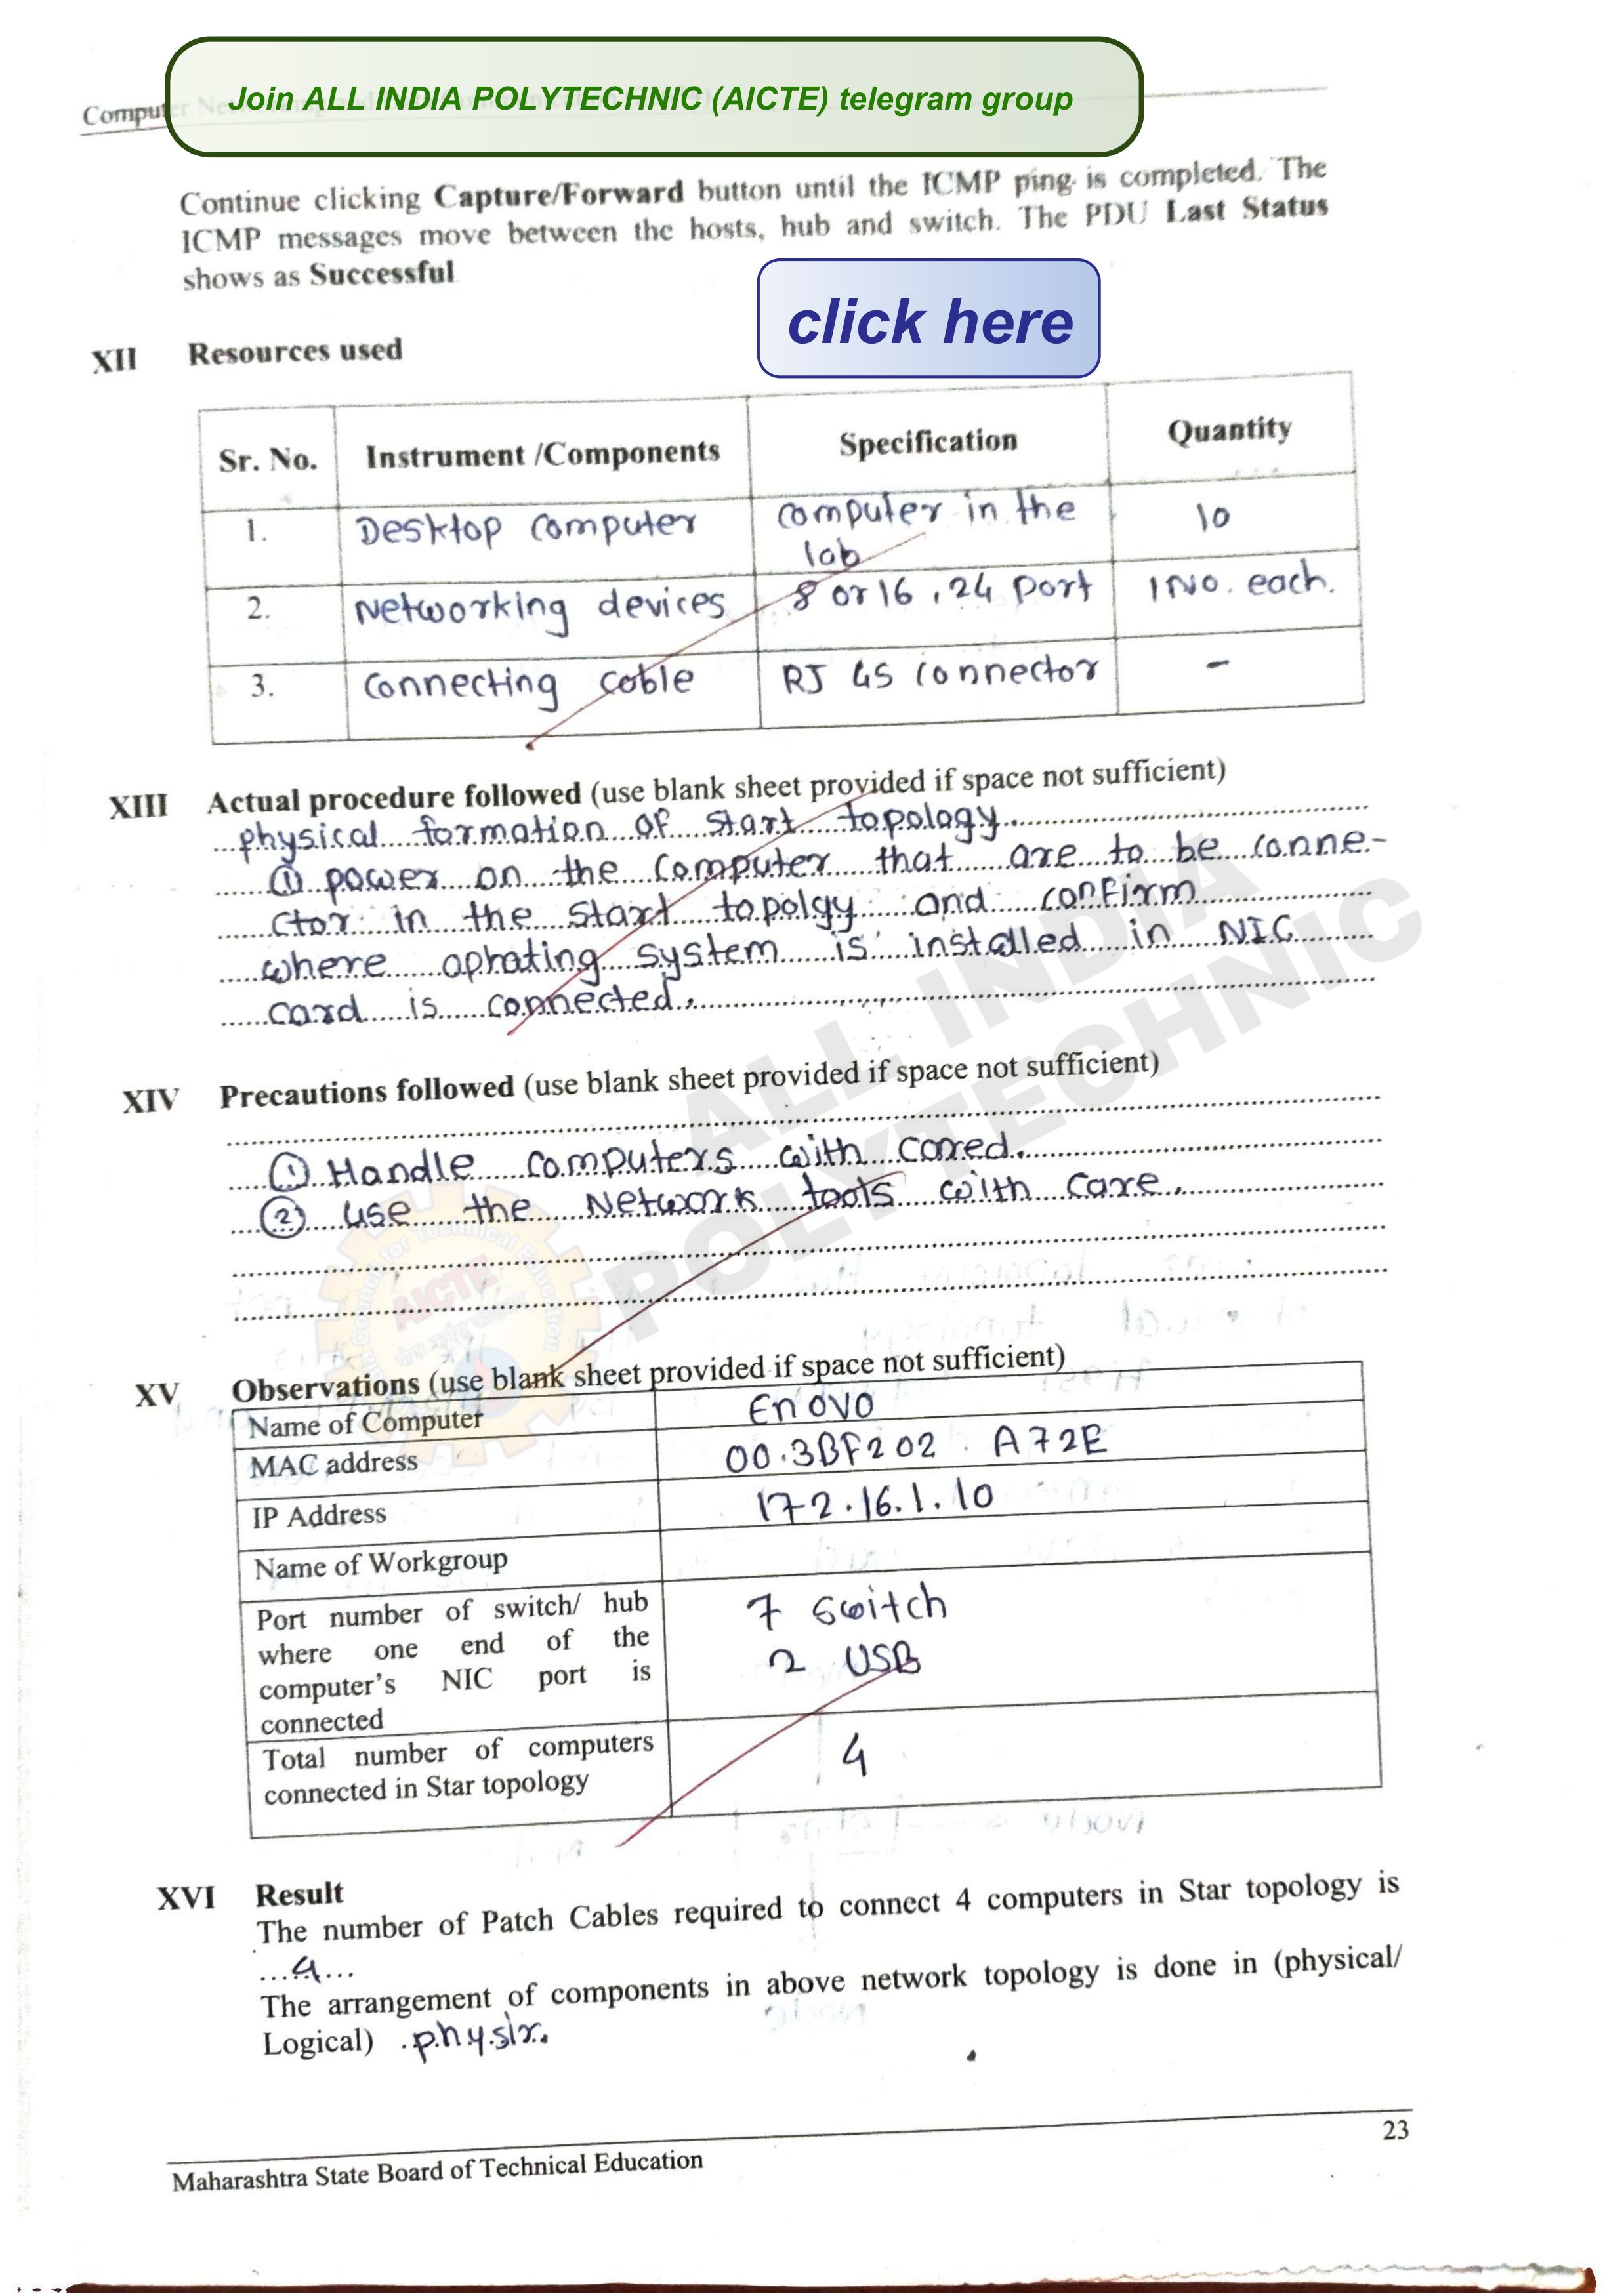 Join ALL INDIA POLYTECHNIC (AICTE) telegram group
Continue clicking Capture/Forward button until the ICMP ping is completed. The
ICMP messages move between the hosts, hub and switch. The PDU Last Status
shows as Successful
click here
XII Resources used
Sr. No. Instrument /Components Specification Quantity
1. Desktop computer computer in the lab 10
2. Networking devices 8 or 16, 24 port 1 No. each.
3. Connecting coble RJ 45 connector -
XIII Actual procedure followed (use blank sheet provided if space not sufficient)
physical formation of start topology
① power on the computer that are to be conne-
ctor in the start topolgy and confirm
where ophating system is installed in NIC
card is connected.
XIV Precautions followed (use blank sheet provided if space not sufficient)
① Handle computers with cared.
② use the Network tools with care.
XV Observations (use blank sheet provided if space not sufficient)
Name of Computer Enovo
MAC address 00.3BF202 . A72E
IP Address 172.16.1.10
Name of Workgroup
Port number of switch/ hub
where one end of the
computer's NIC port is
connected
7 switch
2 USB
Total number of computers
connected in Star topology
4
XVI Result
The number of Patch Cables required to connect 4 computers in Star topology is
...4...
The arrangement of components in above network topology is done in (physical/
Logical)
23
Maharashtra State Board of Technical Education
ALL INDIA
POLYTECHNIC
AICTE